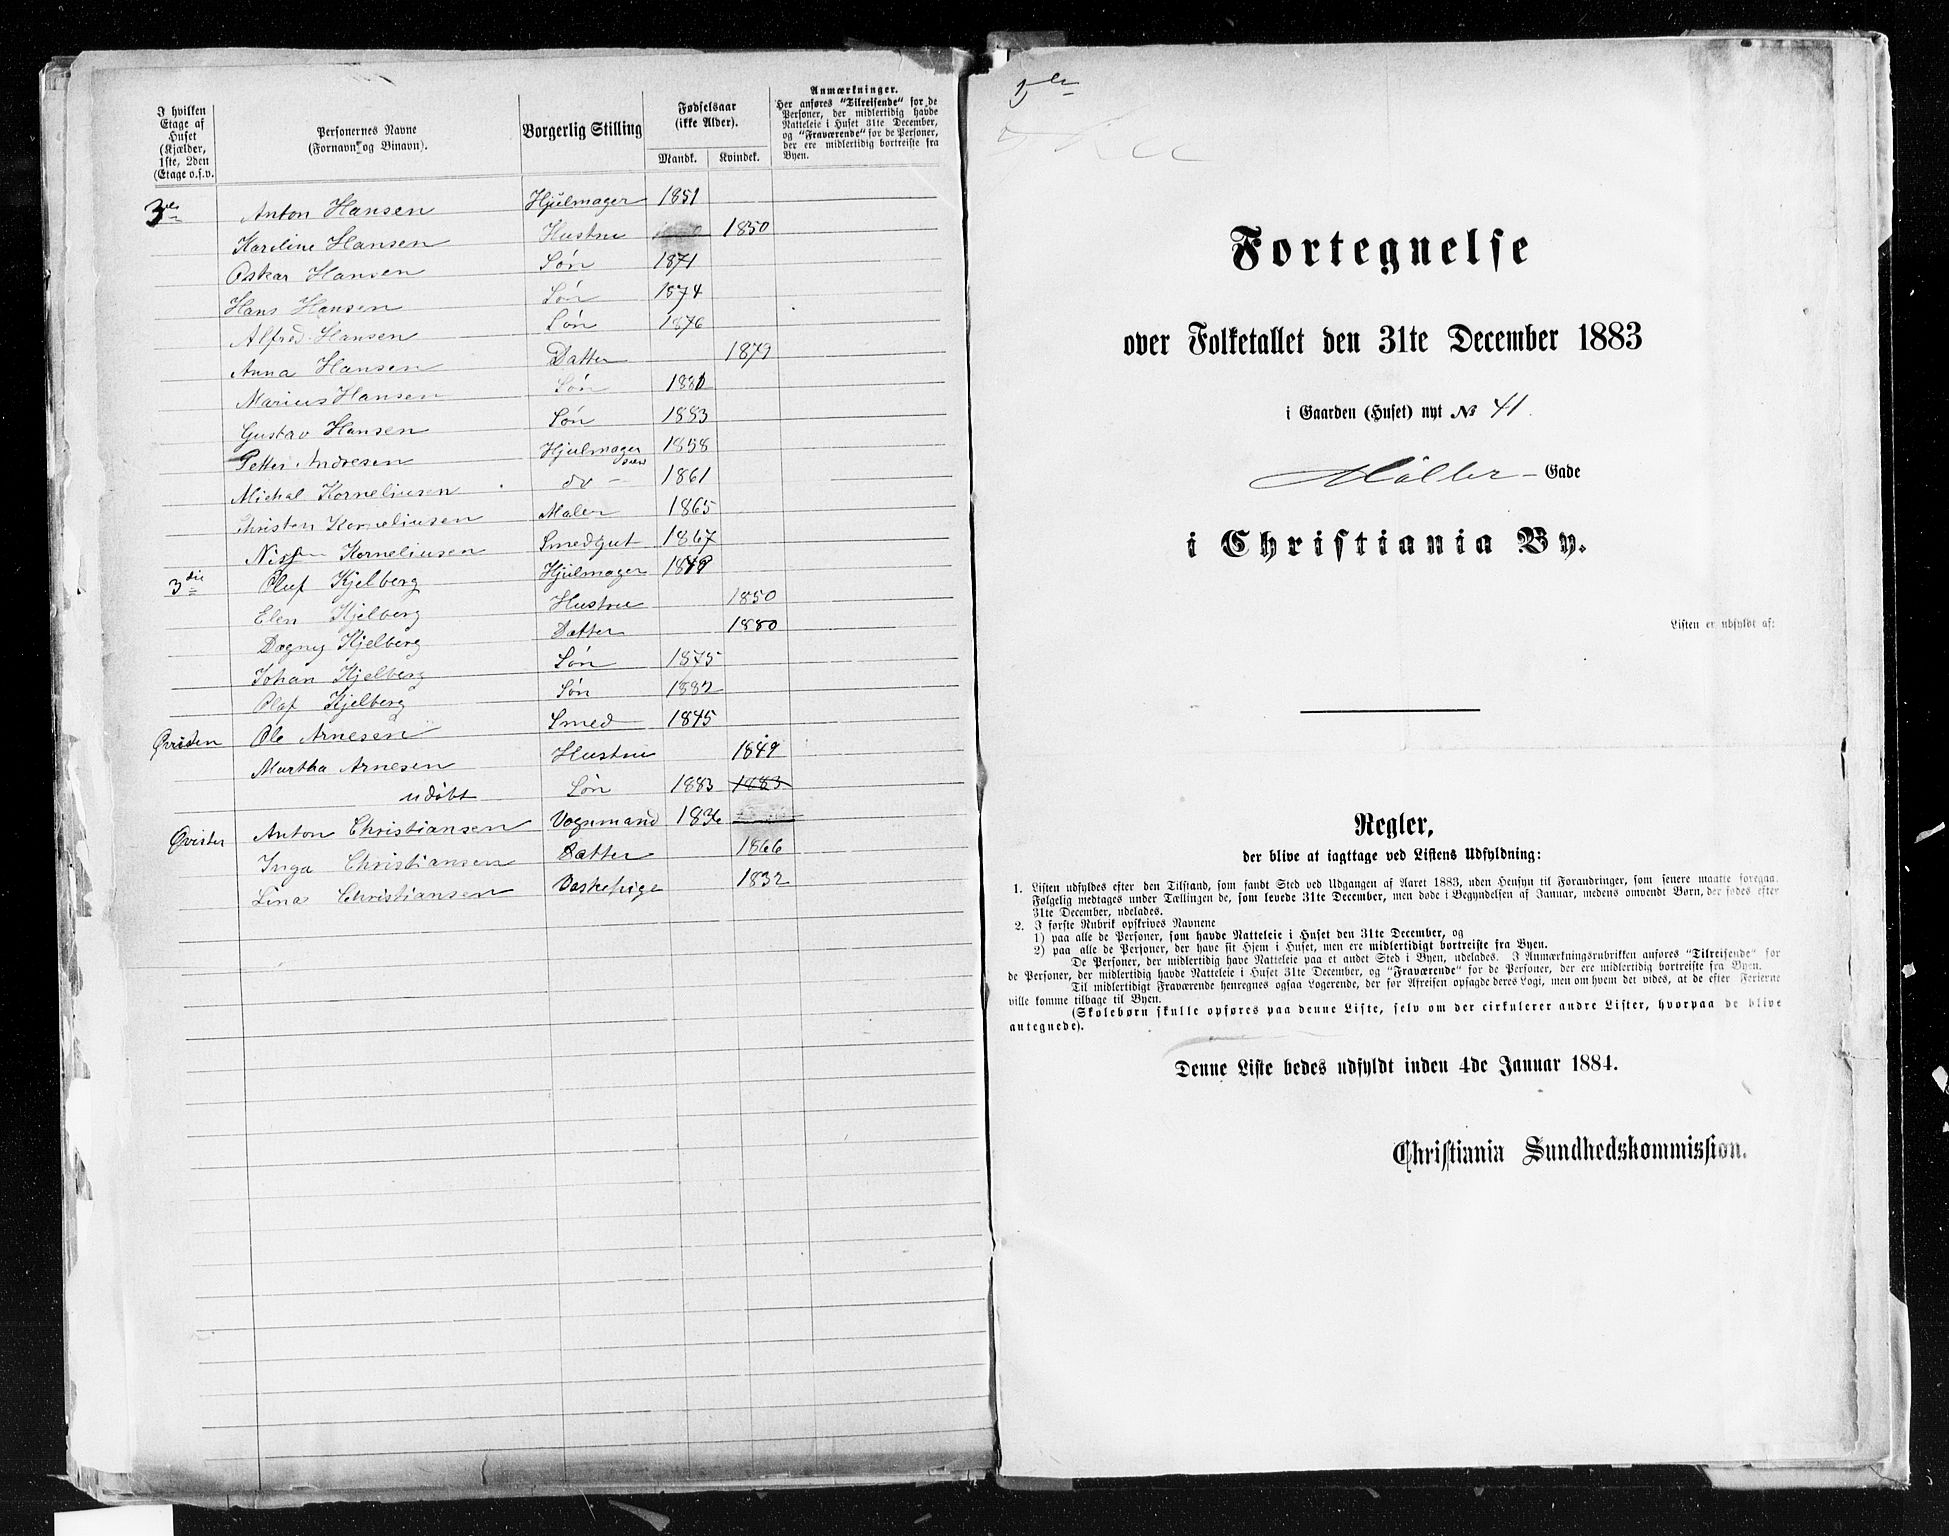 I hvilken
Etage af
Huset
(Kjælder,
1ste, 2den
(Etage o.s.v.
Personernes Navne
(Fornavn og Binavn).
Borgerlig Stilling
Fødselsaar
(ikke Alder).
Mandk. Kvindek.
Anmærkninger.
Her anføres "Tilreisende" for de
Personer, der midlertidig havde
Natteleie i Huset 31te December,
og "Fraværende" for de Personer,
der ere midlertidig bortreiste fra
Byen.
3de Anton Hansen Hjulmager 1851
Kareline Hansen Hustru 1850
Oskar Hansen Søn 1871
Hans Hansen Søn 1874
Alfred Hansen Søn 1876
Anna Hansen Datter 1879
Marius Hansen Søn 1881
Gustav Hansen Søn 1883
Petter Andresen Hjulmager 1858
Michal Korneliusen do - 1861
Christen Korneliusen Maler 1865
Korneliusen Smedgut 1867
3die Oluf Kjelberg Hjulmager
Elen Kjelberg Hustru 1850
Dagny Kjelberg Datter 1880
Johan Kjelberg Søn 1875
Olaf Kjelberg Søn 1882
Qvisten Ole Arnesen Smed 1845
Martha Arnesen Hustru 1849
udøbt Søn 1883 1883
Qvisten Anton Christiansen Vognmand 1836
Inga Christiansen Datter 1866
Lina Christiansen Vaskepige 1832
Fortegnelse
over Folketallet den 31te December 1883
i Gaarden (Huset) nyt № 41.
Møller- Gade
i Christiania By.
Listen er udfyldt af:
Regler,
der blive at iagttage ved Listens Udfyldning:
1. Listen udfyldes efter den Tilstand, som fandt Sted ved Udgangen af Aaret 1883, uden Hensyn til Forandringer, som senere maatte foregaa.
Følgelig medtages under Tællingen de, som levede 31te December, men døde i Begyndelsen af Januar, medens omvendt Børn, der fødes efter
31te December, udelades.
2. I første Rubrik opskrives Navnene
1) paa alle de Personer, som havde Natteleie i Huset den 31te December, og
2) paa alle de Personer, der have sit Hjem i Huset, men ere midlertidigt bortreiste fra Byen.
De Personer, der midlertidig have Natteleie paa et andet Sted i Byen, udelades. I Anmærkningsrubrikken anføres "Tilreisende" for
de Personer, der midlertidig havde Natteleie i Huset 31te December, og "Fraværende" for de Personer, der ere midlertidig bortreiste fra Byen.
Til midlertidigt Fraværende henregnes ogsaa Logerende, der før Afreisen opsagde deres Logi, men om hvem det vides, at de efter Ferierne
ville komme tilbage til Byen.
(Skolebørn skulle opføres paa denne Liste, selv om der cirkulerer andre Lister, hvorpaa de blive
antegnede).
Denne Liste bedes udfyldt inden 4de Januar 1884.
Christiania Sundhedskommission.